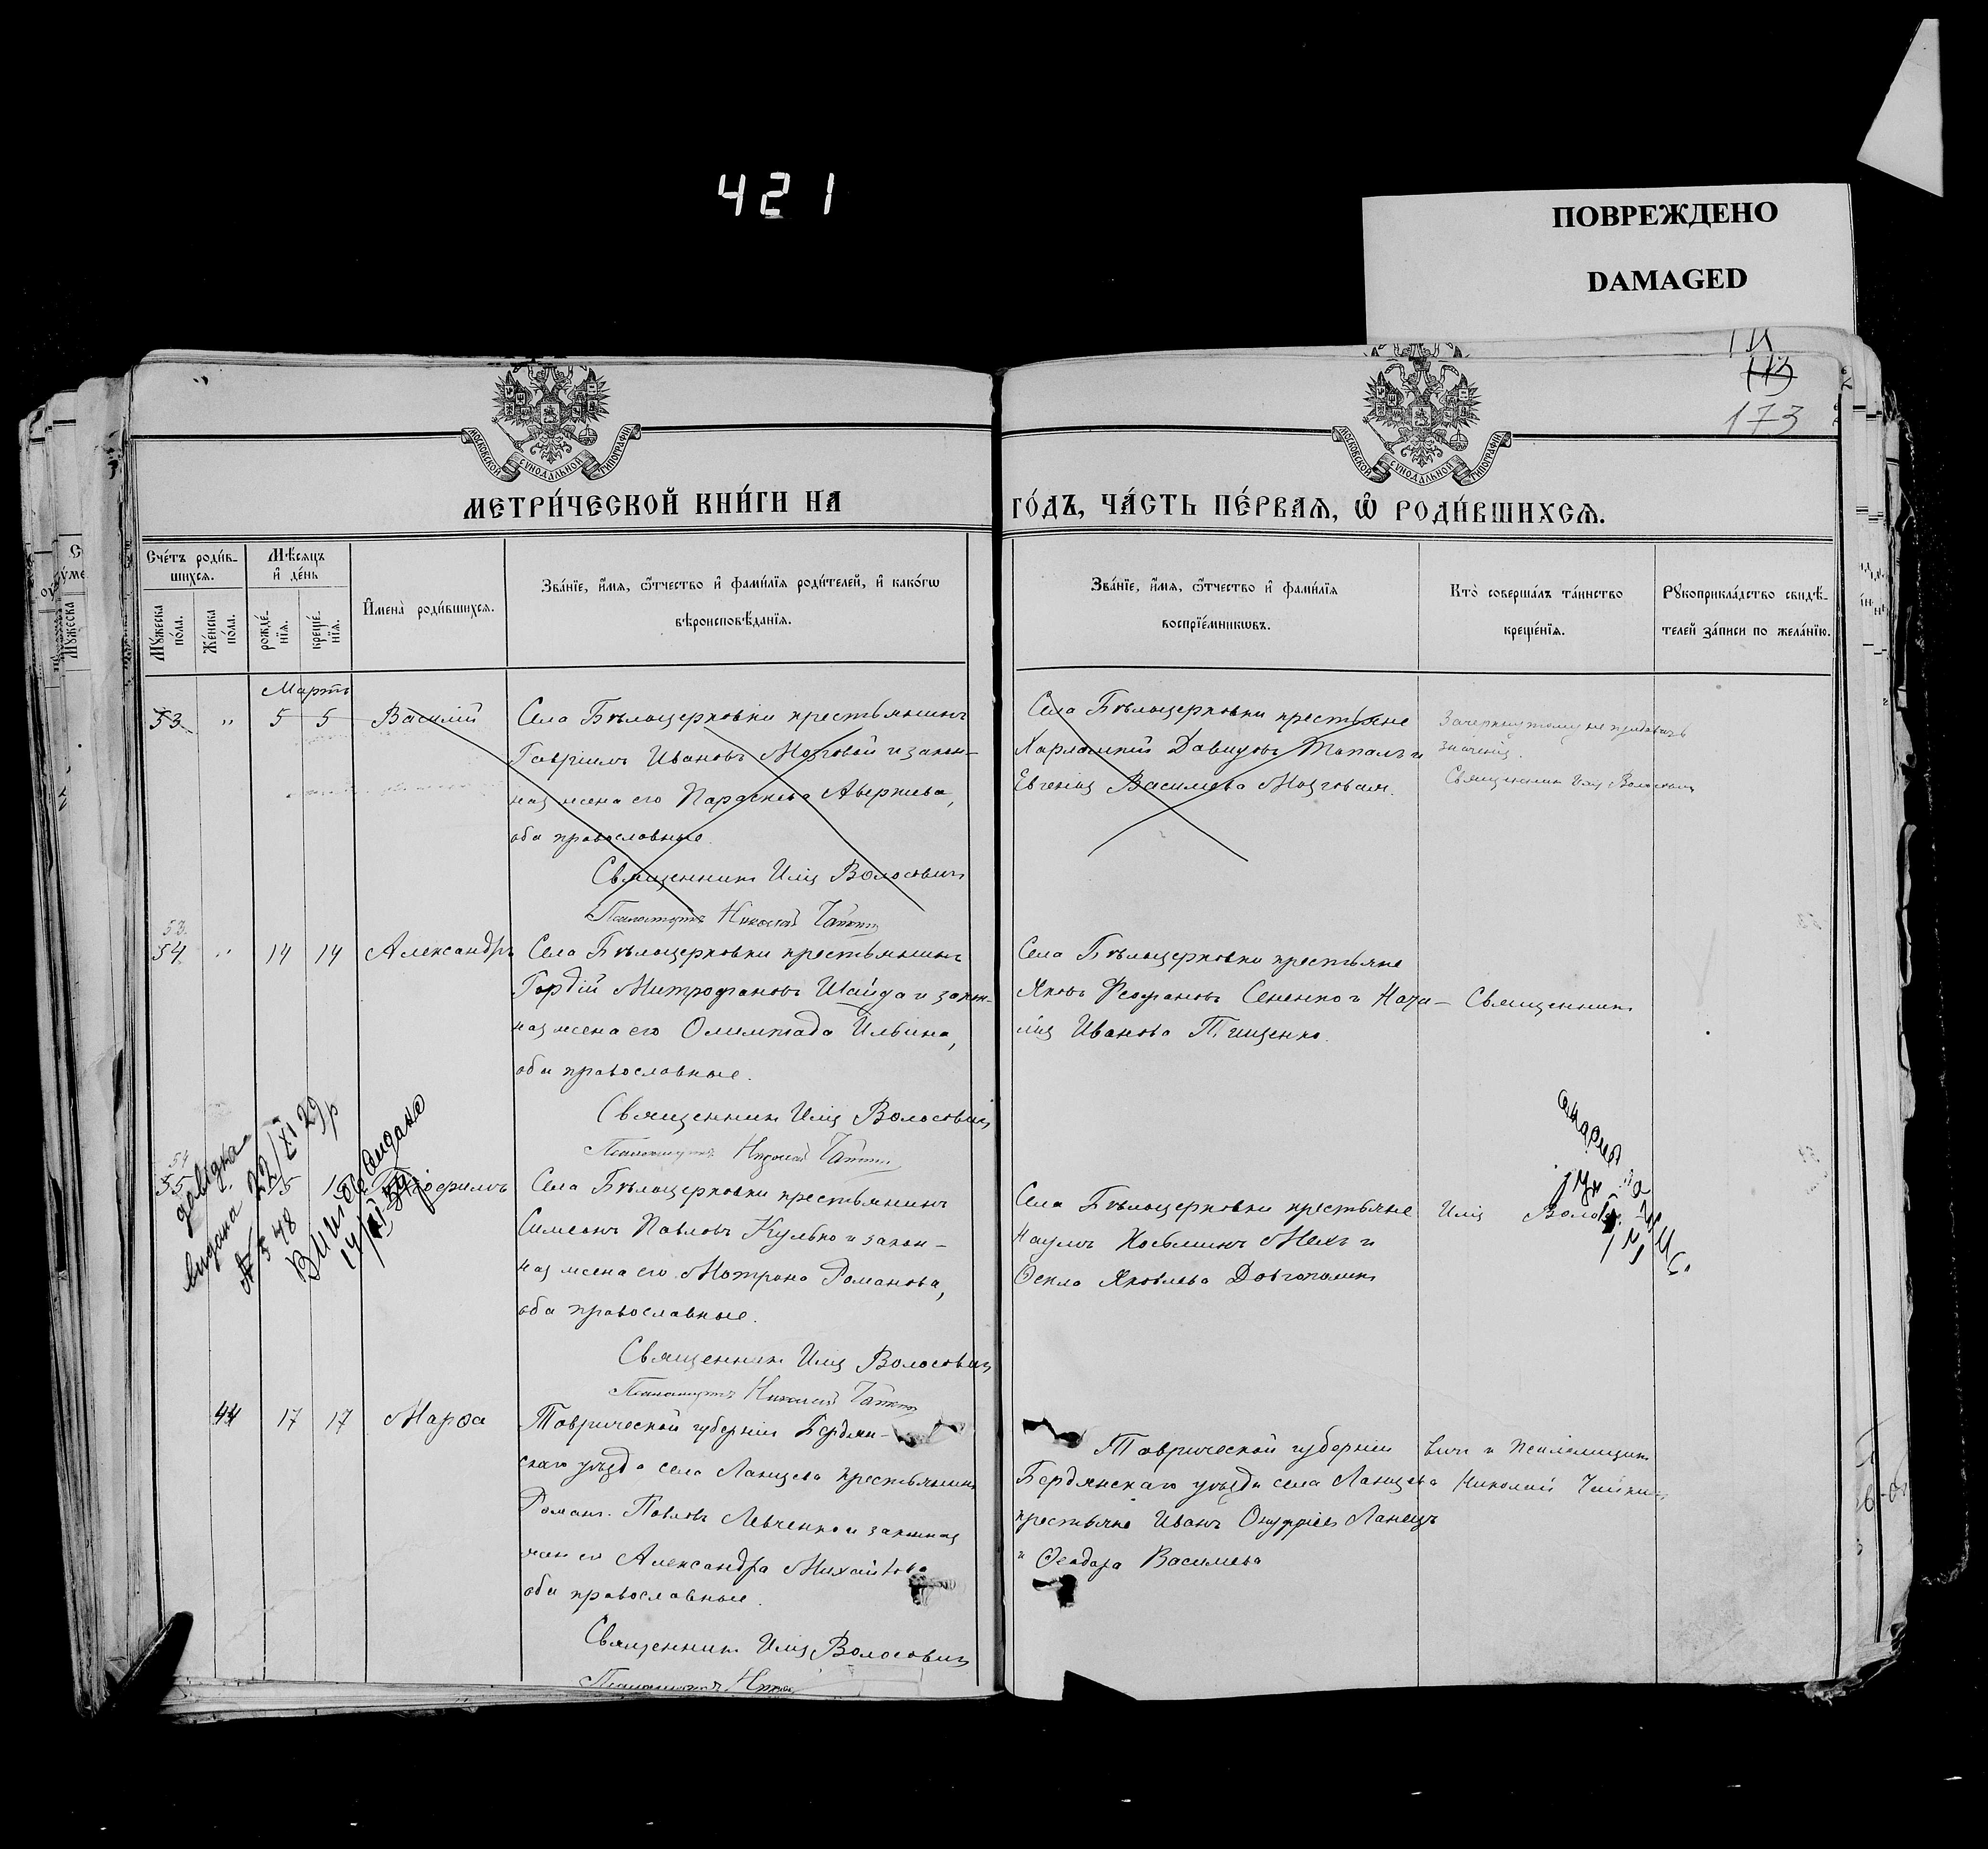 421
ПОВРЕЖДЕНО
DAMAGED
173
МОСКОВСКОЙ СУНОДАЛЬНОЙ ТИПОГРАФІИ
МОСКОВСКОЙ СУНОДАЛЬНОЙ ТИПОГРАФІИ
МЕТРИ́ЧЕСКОЙ КНИ́ГИ НА
ГО́ДЪ, ЧА́СТЬ ПЕ́РВАѦ, Ѡ҆ РОДИ́ВШИХСѦ.
Сче́тъ роди́в-
шихся.
Мѣ́сяцъ
и҆ де́нь
Мꙋ́жеска по́ла.
Же́нска по́ла.
рожде́-
нїѧ.
креще́-
нїѧ.
И҆мена̀ роди́вшихсѧ.
Зва́нїе, и҆́мѧ, ѻ҆́тчество и҆ фами́лїѧ роди́телей, и҆ како́гѡ
вѣроисповѣ́данїѧ.
Зва́нїе, и҆́мѧ, ѻ҆́тчество и҆ фами́лїѧ
воспрїе́мникѡвъ.
Кто̀ соверша́лъ та́инство
креще́нїѧ.
Рꙋкоприкла́дство свидѣ́-
телей за́писи по жела́нїю.
Мартъ
53 " 5 5 Василій
Села Бѣлоцерковки крестьянинъ
Гавріилъ Ивановъ Мозговой и закон-
ная жена его Параскева Аверкіева,
оба православные.
Священникъ Илія Волосовичъ
Псаломщикъ Николай
Села Бѣлоцерковки крестьяне
Харлампій Давидовъ Топалъ и
Евгенія Васильева Мозговая.
Зачеркнутому не придавать
значенія.
Священникъ Илія Волосовичъ
53
54 " 14 14 Александръ
Села Бѣлоцерковки крестьянинъ
Гордій Митрофановъ Шайда и закон-
ная жена его Олимпіада Ильина,
оба православные.
Священникъ Илія Волосовичъ
Псаломщикъ Николай
Села Бѣлоцерковки крестьяне
Яковъ Феофановъ Сененко и Ната-
лія Иванова Пищенко.
Священникъ
54
55
довідка
видана 22/XI 29 р
№ 548
Видана
Села Бѣлоцерковки крестьянинъ
Симеонъ Павловъ Кулько и закон-
ная жена его Матрона Романова,
оба православные.
Священникъ Илія Волосовичъ
Псаломщикъ Николай
Села Бѣлоцерковки крестьяне
Наумъ Косьминъ Мехъ и
Ѳекла Яковлева
Илія Волосо-
44 17 17 Марѳа
Таврической губерніи Бердян-
скаго уѣзда села Ланцева крестьянинъ
Романъ Павловъ Левченко и законная
жена его Александра Михайлова
оба православные.
Священникъ Илія Волосовичъ
Псаломщикъ
Таврической губерніи
Бердянскаго уѣзда села Ланцева
крестьяне Иванъ Онуфріевъ Ланецъ
и Ѳеодора Васильева
вичъ и псаломщикъ
Николай